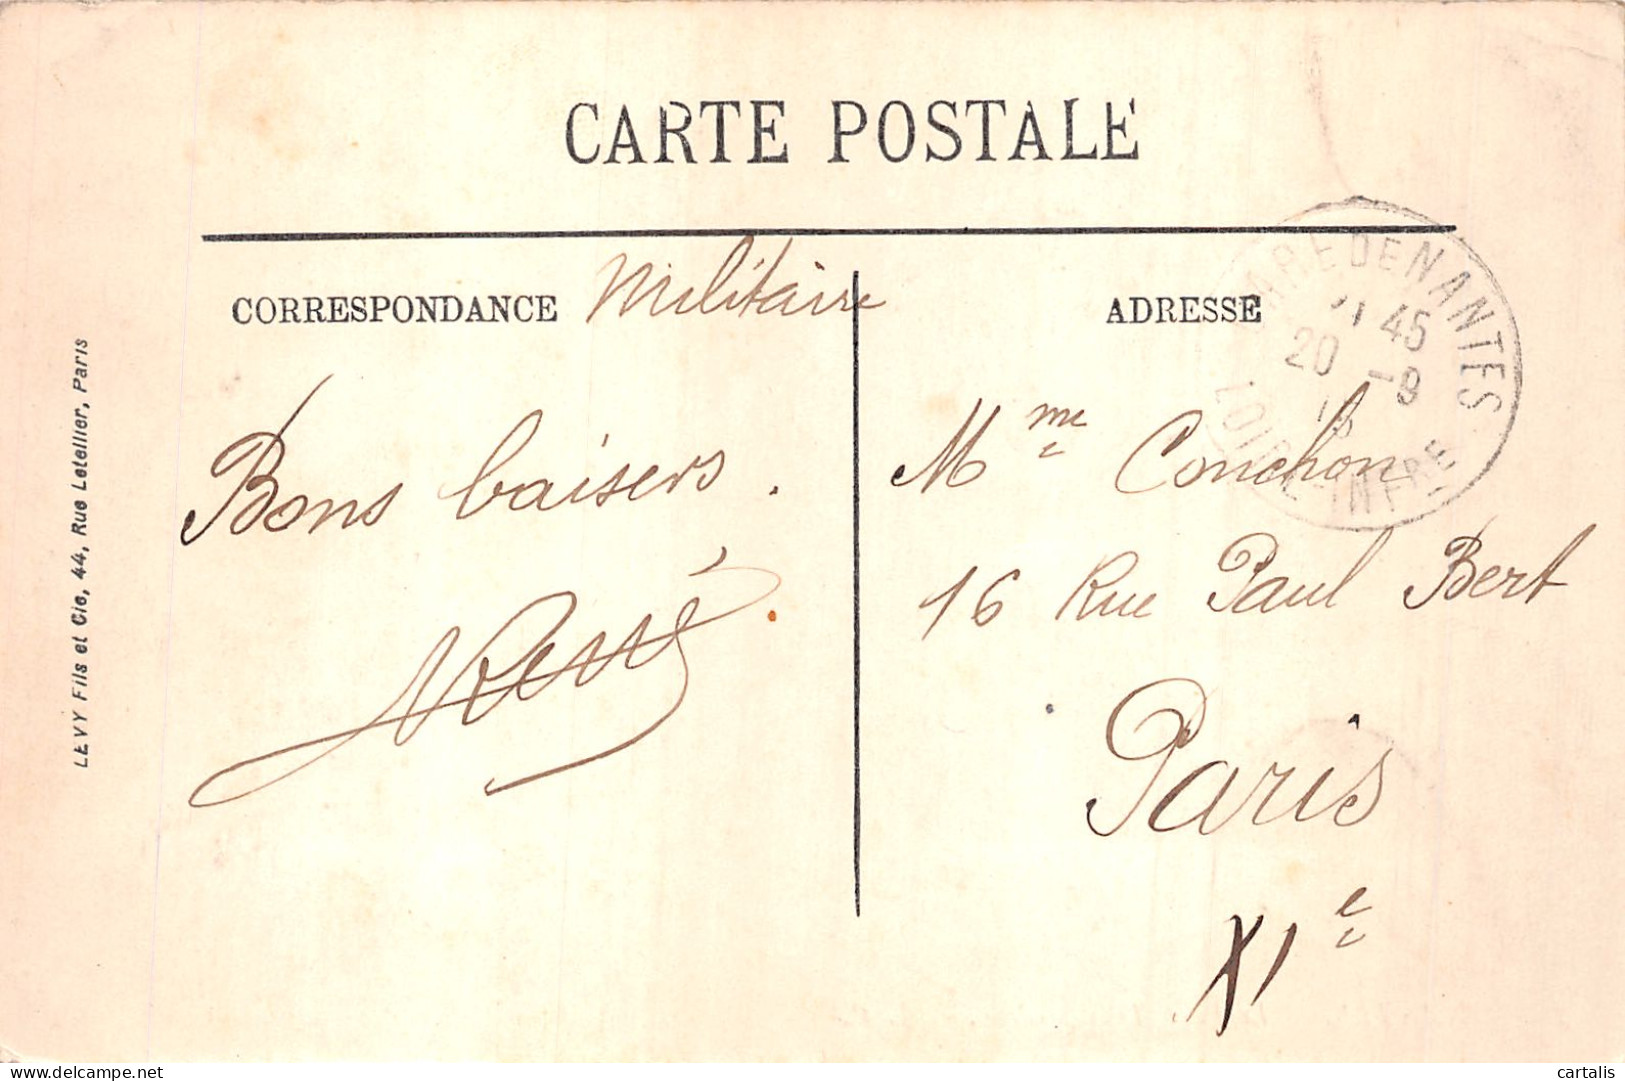 CARTE POSTALE
CORRESPONDANCE Militaire
Bons baisers.
René
ADRESSE
GARE DE NANTES
45
20 -9
LOIRE-INFRE
Mme Conchon
16 Rue Paul Bert
Paris
XIe
LEVY Fils et Cie, 44, Rue Letellier, Paris
www.delcampe.net
cartalis